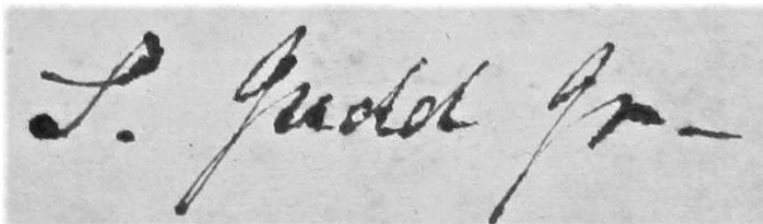 S. Judd Jr-